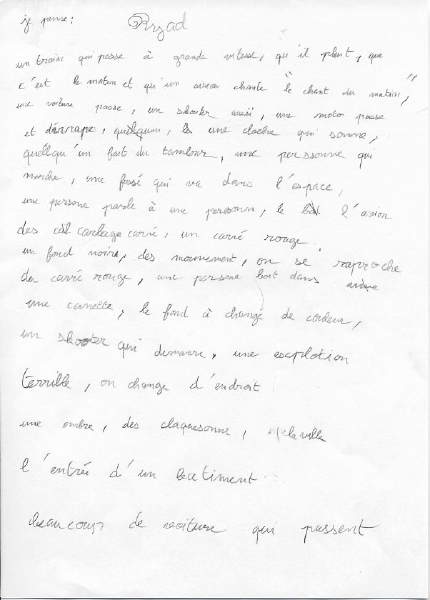 je pense : Ryad
un traine qui passe à grande vitesse, qu'il pleut, que
c'est le matin et qu'un oiseau chante "le chant du matin",
une voiture passe, un skooter aussi, une moto passe
et dérrape, quelquun, là une cloche qui sonne,
quellqu'un fait du tambour, une personne qui
marche, une fusé qui va dans l'espace,
une persone parle à une personne, le l'avion
des carlage carré, un carré rouge,
un fond noire, des mouvement, on se raproche
du carré rouge, une persone boit dans
une canette, le fond à changé de couleur,
un skooter qui démarre, une explotion
terrible, on change d'endroit
une ombre, des claquesonne, la ville
l'entrée d'un bactiment
beaucoup de voiture qui passent